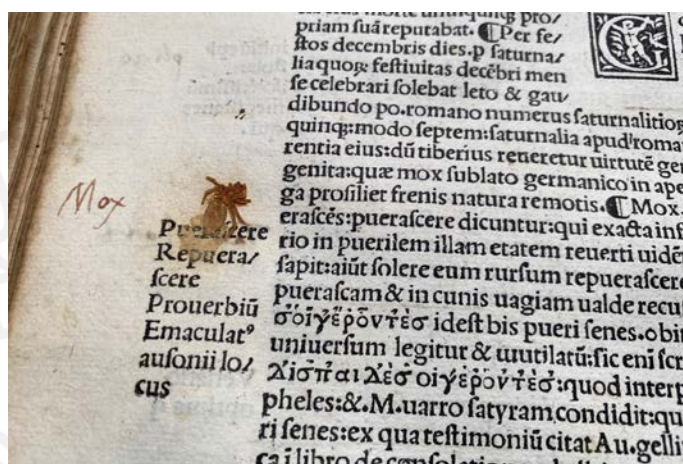 priam ſuā reputabat. ¶Per fe/
ſtos decembris dies.p ſaturna/
lia quoqꝫ feſtiuitas decēbri men
ſe celebrari ſolebat leto & gau/
dibundo po.romano numerus ſaturnalitio
quinqꝫ:modo ſeptem:ſaturnalia apud roma
rentia eius:dū tiberius reueretur uirtutē ger
genita:quæ mox ſublato germanico in ape
ga proſiliet frenis natura remotis.¶Mox.
eraſcēs:pueraſcere dicuntur:qui exacta inf
rio in puerilem illam etatem reuerti uidē
ſapit:aiūt ſolere eum rurſum repueraſcere
pueraſcam & in cunis uagiam ualde recu
σοἰγέροντέσ ideſt bis pueri ſenes.obi
uniuerſum legitur & mutilatū:ſic eni ſcr
Δἰσπαι Δέσ οἰγέροντέσ:quod interp
pheles:&.M.uarro ſatyram condidit:qu
ri ſenes:ex qua teſtimoniū citat Au.gelli
Mox
Pueraſcere
Repuera/
ſcere
Prouerbiū
Emaculatꝰ
auſonii lo/
cus